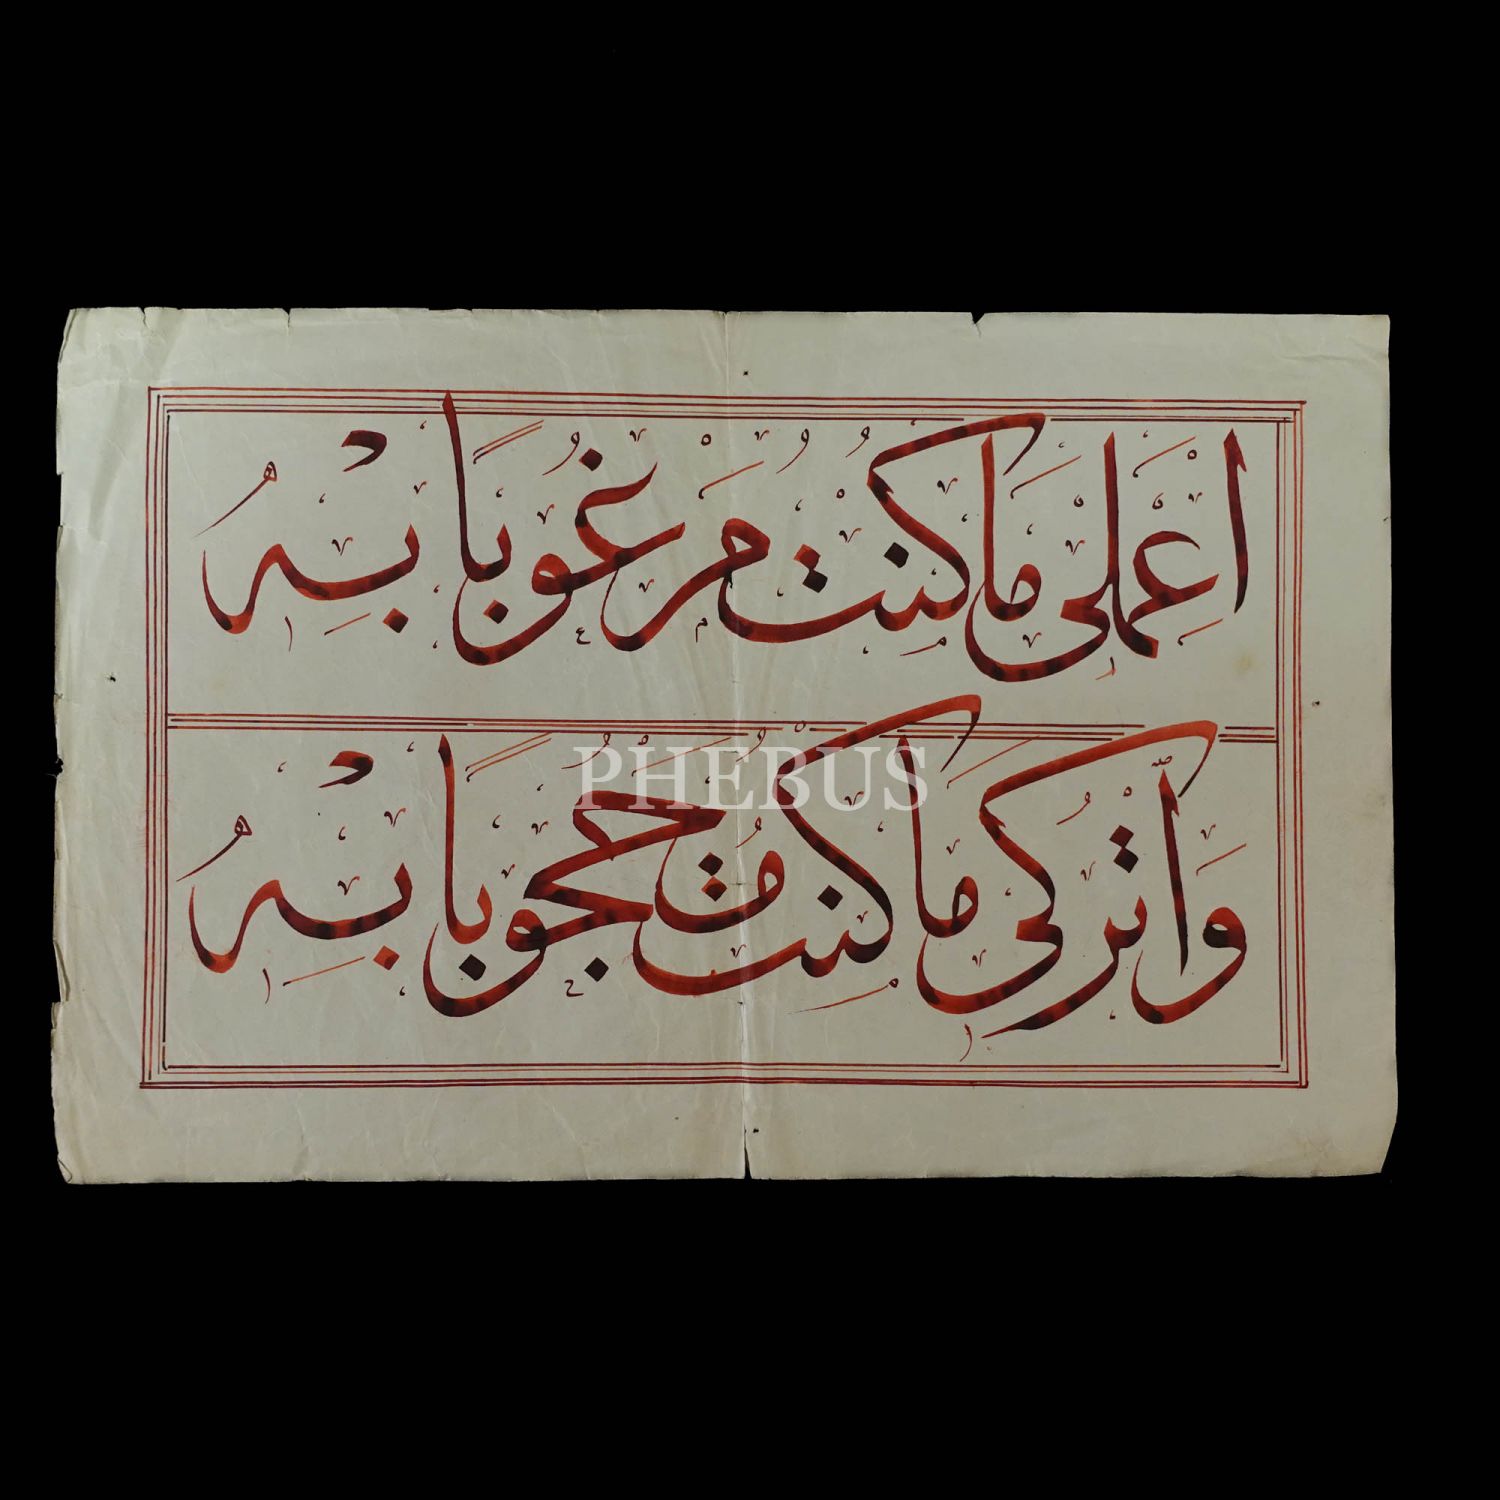 اعملى ما كنت مرغوبا به
واتركى ما كنت محجوبا به
PHEBUS